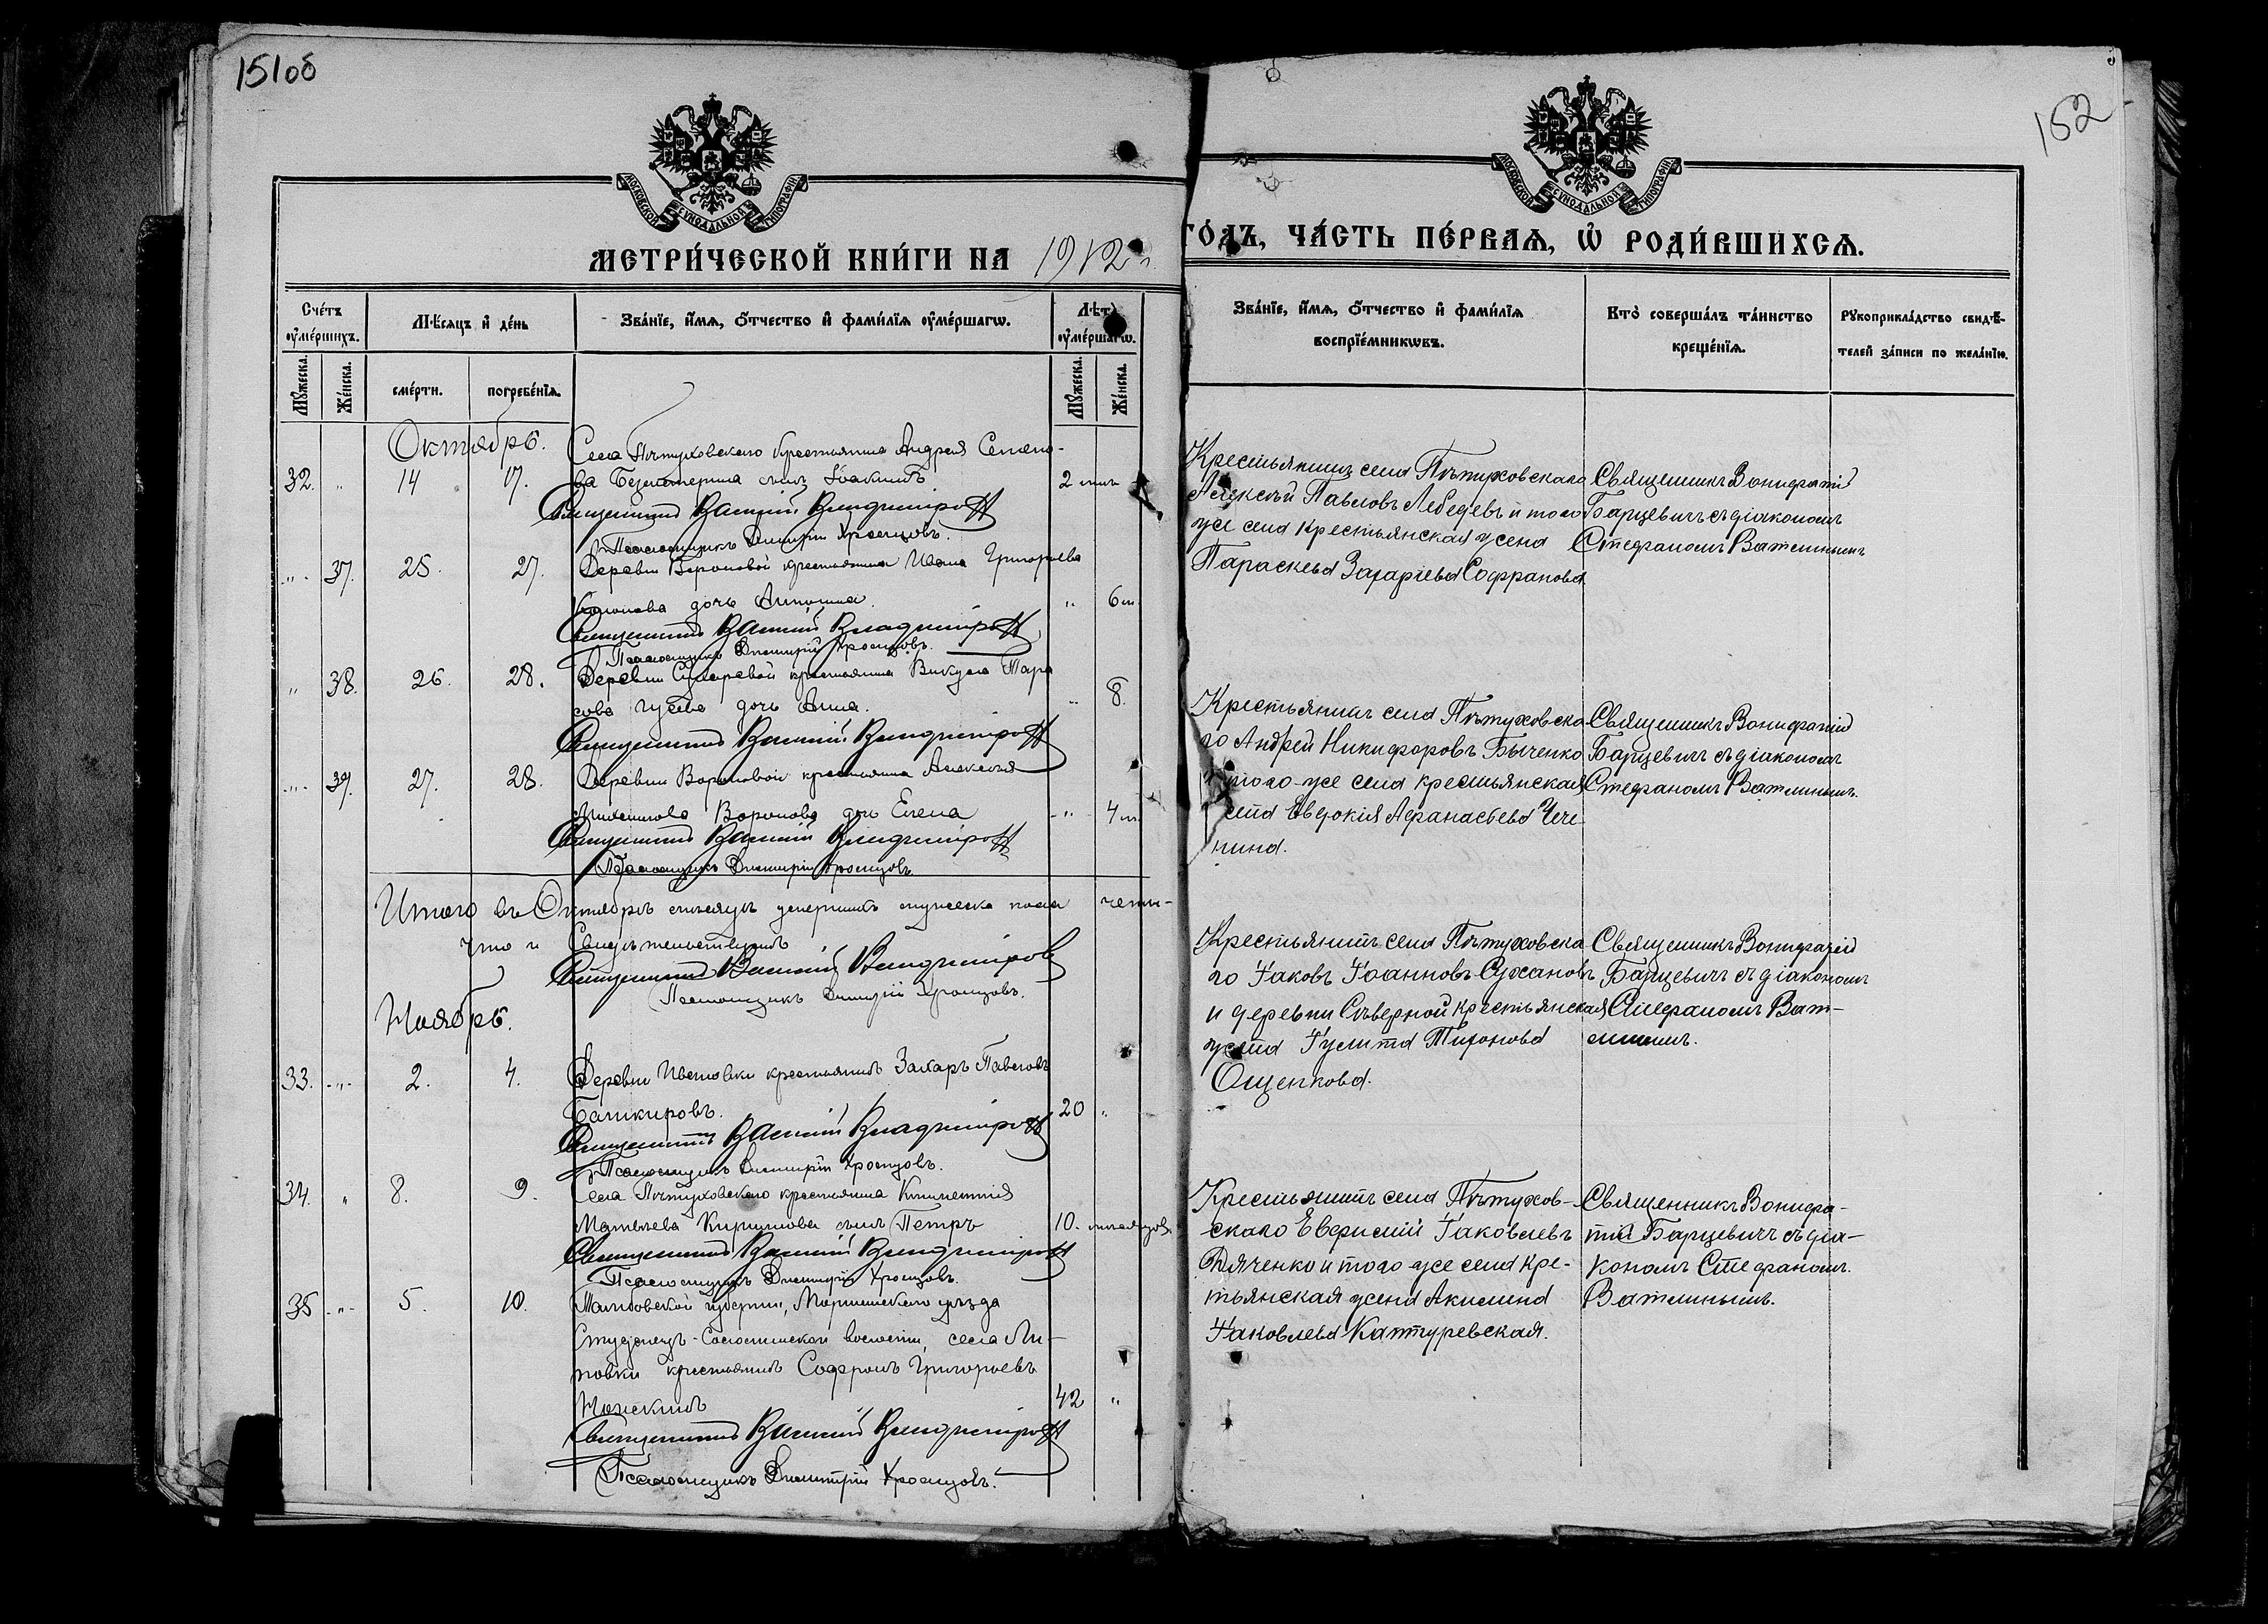 151об
МОСКОВСКОЙ СѴНОДАЛЬНОЙ ТИПОГРАФІИ
МЕТРИ́ЧЕСКОЙ КНИ́ГИ НА 1912 г.
Сче́тъ ᲂу҆ме́ршихъ.
Мѣ́сяцъ и҆ де́нь
Зва́нїе, и҆́мѧ, ѻ҆́тчество и҆ фами́лїѧ ᲂу҆ме́ршагѡ.
Лѣ́та ᲂу҆ме́ршагѡ.
Мꙋ́жеска.
Же́нска.
сме́рти.
погребе́нїѧ.
Мꙋ́жеска.
Же́нска.
Октябрь.
Села Пѣтуховскаго крестьянина Андрея Семено-
32. " 14 17. ва сынъ Іоакимъ 2 лѣтъ
Священникъ Василій Владиміровъ
Псаломщикъ Димитрій Хромцовъ.
" 37. 25. 27. Деревни Вороновой крестьянина Ивана Григорьева
дочь " 6 м.
Священникъ Василій Владиміровъ
Псаломщикъ Димитрій Хромцовъ.
" 38. 26. 28. Деревни крестьянина Викула Тара
сова Гусева дочь Анна. " 8.
Священникъ Василій Владиміровъ
" 39. 27. 28. Деревни Вороновой крестьянина Алексѣя
Воронова дочь Елена " 4 м.
Священникъ Василій Владиміровъ
Псаломщикъ Димитрій Хромцовъ
Итого въ Октябрѣ мѣсяцѣ умершихъ мужеска пола
что и Свидѣтельствуютъ
Священникъ Василій Владиміровъ
Псаломщикъ Димитрій Хромцовъ.
Ноябрь.
33. " 2. 4. Деревни Ивановки крестьянинъ Захаръ Павловъ
Башкировъ. 20 "
Священникъ Василій Владиміровъ
Псаломщикъ Димитрій Хромцовъ.
34. " 8. 9. Села Пѣтуховскаго крестьянина Климентія
Матвѣева Кириллова сынъ Петръ 10. мѣсяцовъ
Священникъ Василій Владиміровъ
Псаломщикъ Димитрій Хромцовъ.
35 " 5. 10. Тамбовской губерніи, Моршанскаго уѣзда
волости, села Ли-
повки крестьянинъ Софронъ Григорьевъ
42 "
Священникъ Василій Владиміровъ
Псаломщикъ Димитрій Хромцовъ.
152
МОСКОВСКОЙ СѴНОДАЛЬНОЙ ТИПОГРАФІИ
ГО́ДЪ, ЧА́СТЬ ПЕ́РВАѦ, Ѽ РОДИ́ВШИХСѦ.
Зва́нїе, и҆́мѧ, ѻ҆́тчество и҆ фами́лїѧ воспрїе́мникѡвъ.
Кто̀ соверша́лъ та́инство креще́нїѧ.
Рꙋкоприкла́дство свидѣ́-
телей за́писи по жела́нїю.
Крестьянинъ села Пѣтуховскаго
Алексѣй Павловъ Лебедевъ и того
же села крестьянская жена
Параскева Захаріева Софранова
Священникъ Вонифатій
Барцевичъ съ діакономъ
Стефаномъ Ватлинымъ
Крестьянинъ села Пѣтуховска
го Андрей Никифоровъ Быченко
и того-же села крестьянская
жена Евдокія Афанасьева Чече
нина.
Священникъ Вонифатій
Барцевичъ съ діакономъ
Стефаномъ Ватлинымъ.
Крестьянинъ села Пѣтуховска
го Іаковъ Іоанновъ Сухановъ
и деревни Сѣверной крестьянская
жена Іулитта Тихонова
Ощепкова.
Священникъ Вонифатій
Барцевичъ съ діакономъ
Стефаномъ Ват-
линымъ.
Крестьянинъ села Пѣтухов-
скаго Евфимій Іаковлевъ
Дяченко и того-же села кре-
тьянская жена Акилина
Іаковлева Каттуревская.
Священникъ Вонифа-
тій Барцевичъ съ діа-
кономъ Стефаномъ
Ватлинымъ.